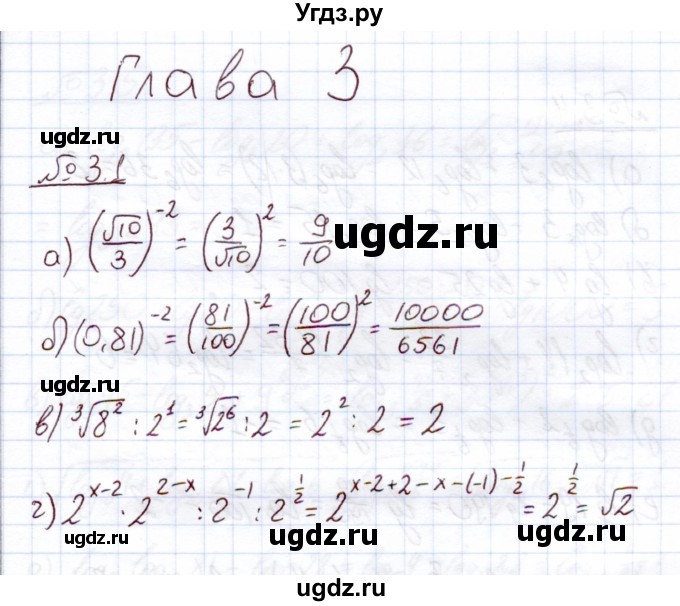 Угдз.ру
Глава 3
ugdz.ru
№ 3.1
а) (√10/3)^-2 = (3/√10)^2 = 9/10
ugdz.ru
б) (0,81)^-2 = (81/100)^-2 = (100/81)^2 = 10000/6561
ugdz.ru
в) ∛8^2 : 2^1 = ∛2^6 : 2 = 2^2 : 2 = 2
г) 2^x-2 · 2^2-x : 2^-1 : 2^1/2 = 2^x-2+2-x-(-1)-1/2 = 2^1/2 = √2
ugdz.ru
ugdz.ru
ugdz.ru